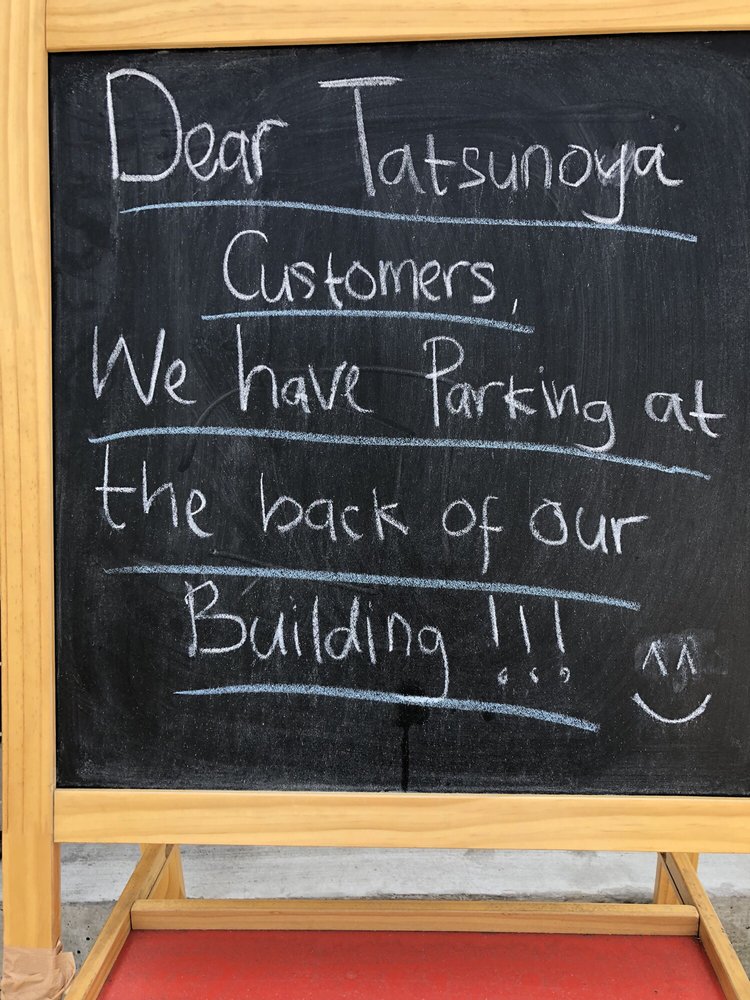 Dear Tatsunoya
Customers,
We have Parking at
the back of our
Building !!!